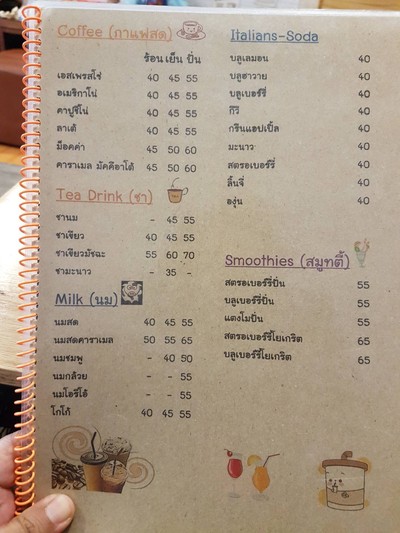 Coffee (กาแฟสด)
ร้อน เย็น ปั่น
เอสเพรสโซ่ 40 45 55
อเมริกาโน่ 40 45 55
คาปูชิโน่ 40 45 55
ลาเต้ 40 45 55
ม็อคค่า 45 50 60
คาราเมล มัคคิอาโต้ 45 50 60
Tea Drink (ชา)
ชานม - 45 55
ชาเขียว 40 45 55
ชาเขียวมัชฉะ 55 60 70
ชามะนาว - 35 -
Milk (นม)
นมสด 40 45 55
นมสดคาราเมล 50 55 65
นมชมพู - 40 50
นมกล้วย - - 55
นมโอรีโอ้ - - 55
โกโก้ 40 45 55
Italians-Soda
บลูเลมอน 40
บลูฮาวาย 40
บลูเบอร์รี่ 40
กีวี 40
กรีนแอปเปิ้ล 40
มะนาว 40
สตรอเบอร์รี่ 40
ลิ้นจี่ 40
องุ่น 40
Smoothies (สมูทตี้)
สตรอเบอร์รี่ปั่น 55
บลูเบอร์รี่ปั่น 55
แตงโมปั่น 55
สตรอเบอร์รี่โยเกิร์ต 65
บลูเบอร์รี่โยเกิร์ต 65